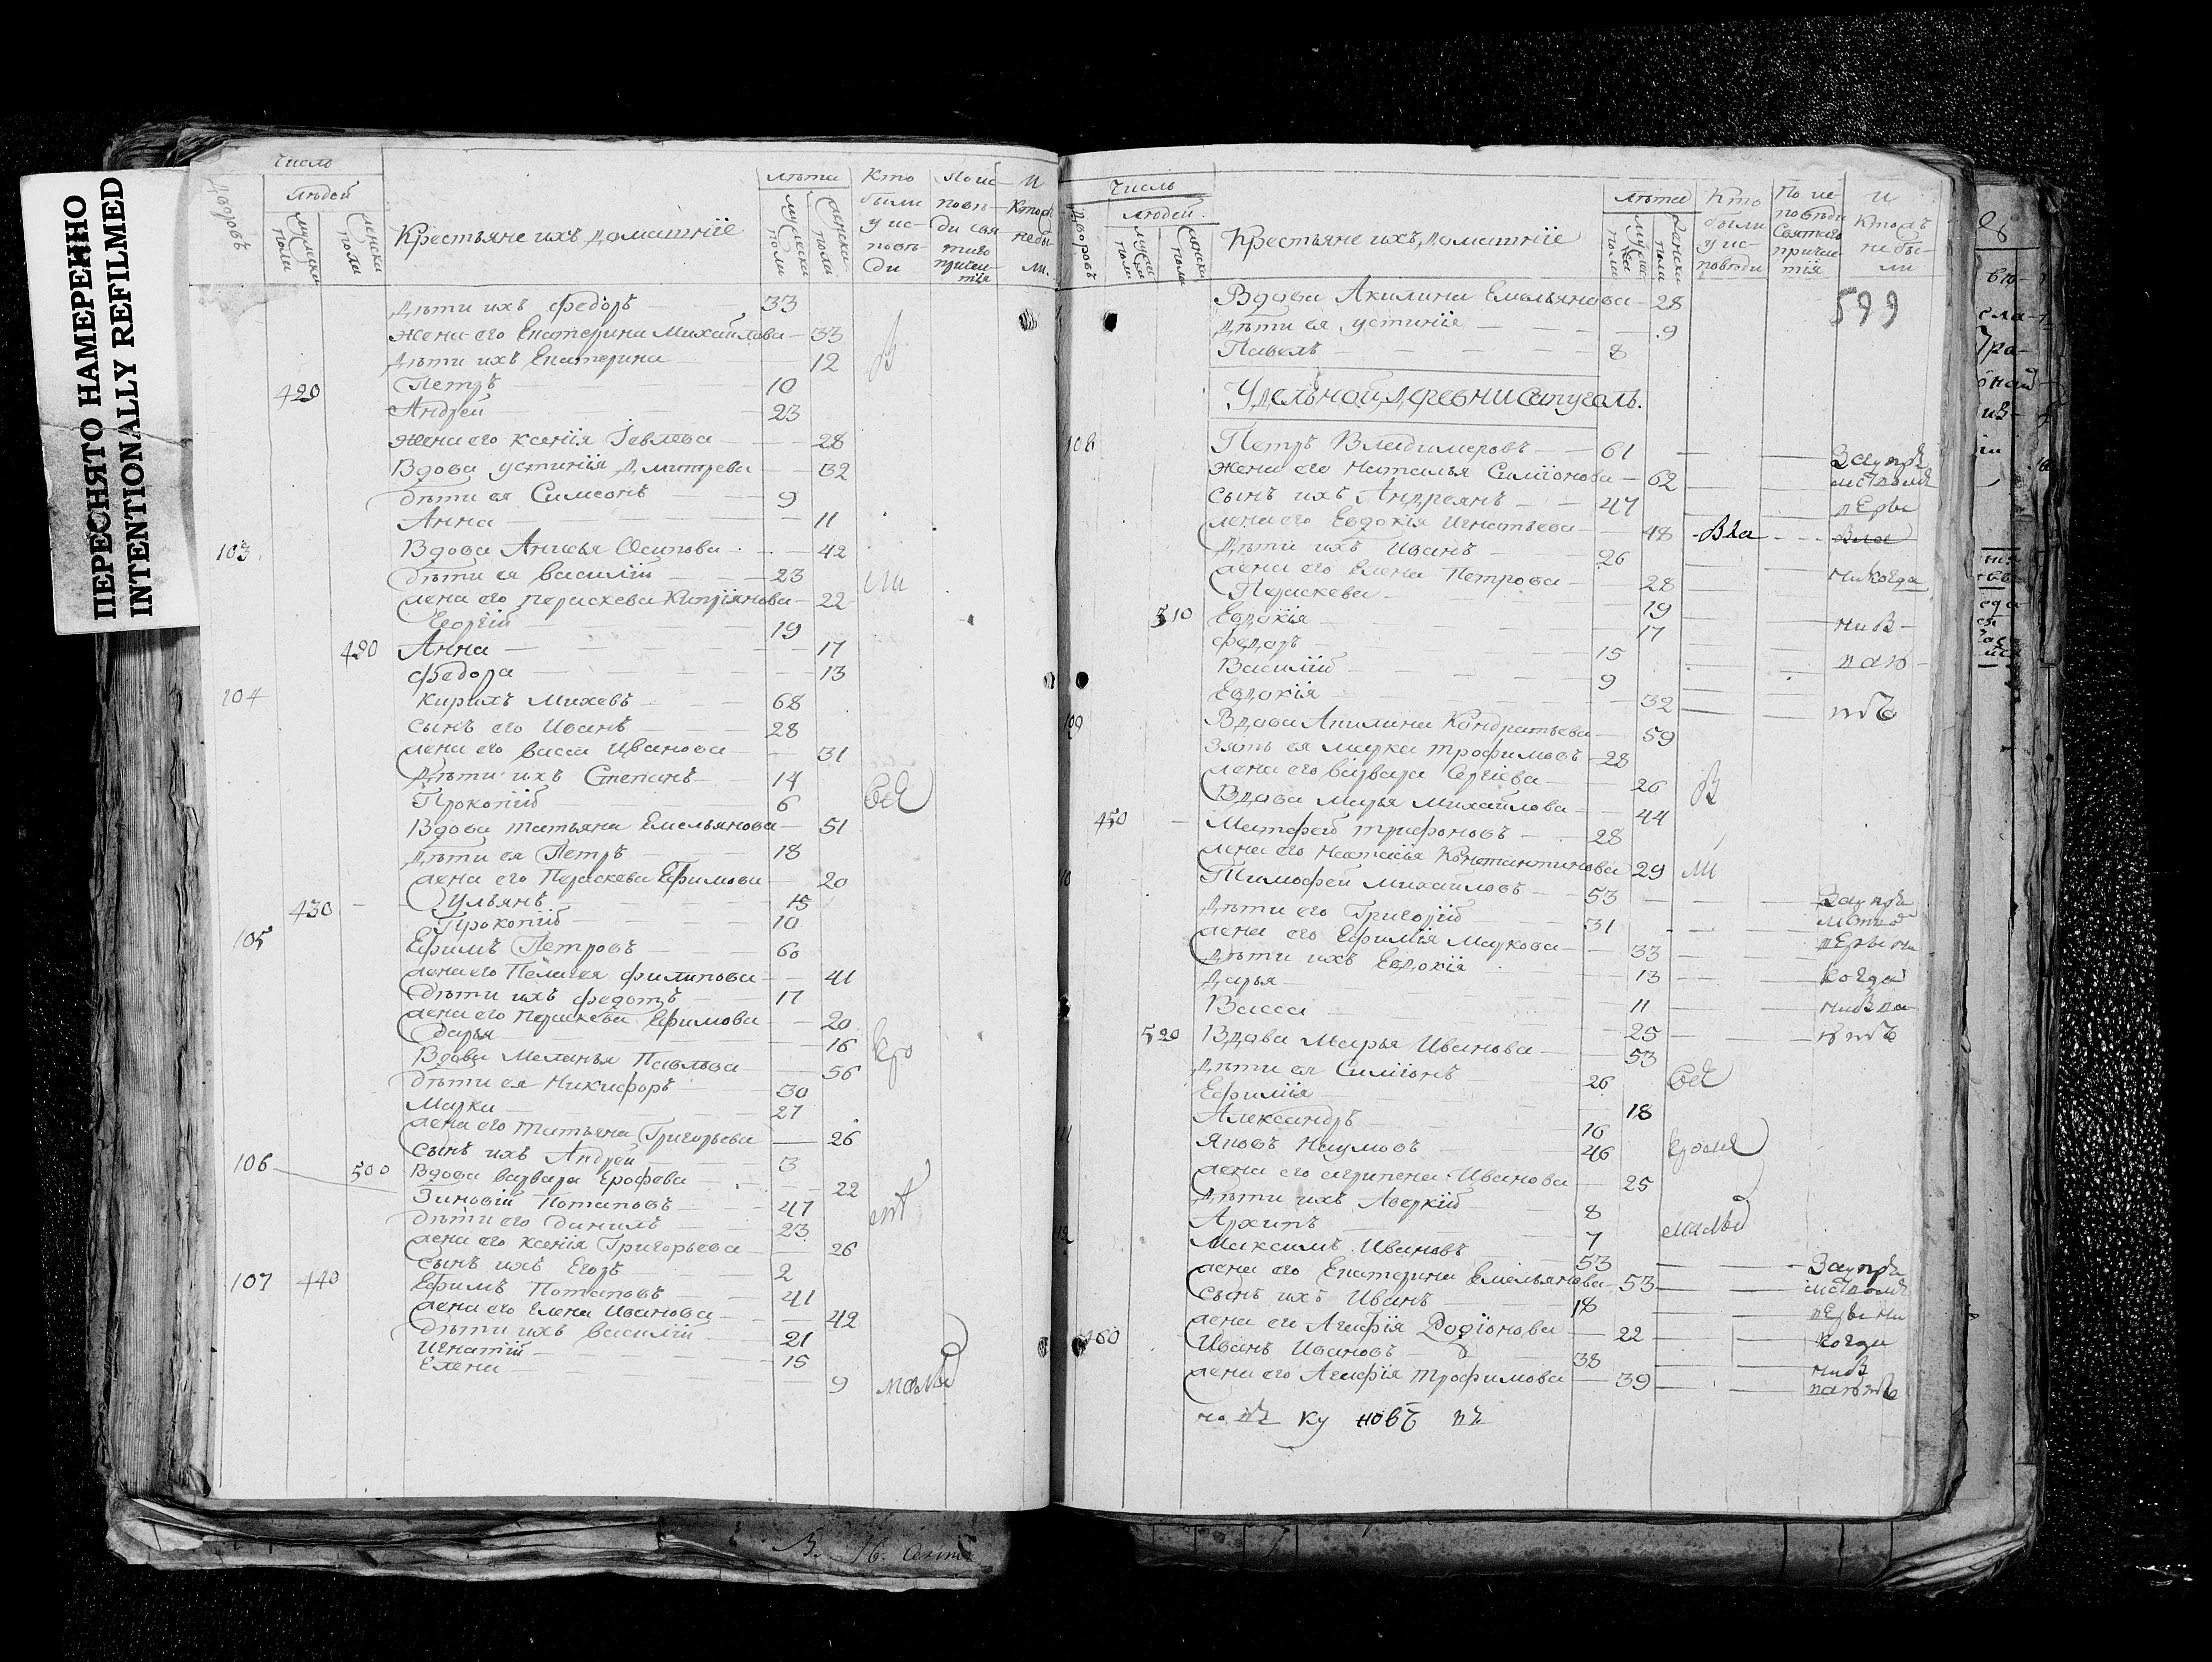 ПЕРЕСНЯТО НАМЕРЕННО
INTENTIONALLY REFILMED
Число
Дворовъ
людей
мужеска полу
женска полу
Крестьяне ихъ домашнiе
лѣта
мужеска полу
женска полу
Кто были у исповѣди
По исповѣди святаго причастiя
И Кто не были.
Дѣти ихъ Федоръ 33
жена его Екатерина Михайлова 33
Дѣти ихъ Екатерина 12
420 Петръ 10
Андрей 23
жена его Ксенiя Iевлева 28
Вдова Устинiя Дмитрева 32
дѣти ея Симеонъ 9
Анна 11
103 Вдова Анисья Осипова 42
дѣти ея Василiй 23
жена его Пераскева Киприянова 22
Георгiй 19
490 Анна 17
Федора 13
104 Кирихъ Михеевъ 68
сынъ его Иванъ 28
жена его Васса Иванова 31
Дѣти ихъ Степанъ 14
Прокопiй 6
Вдова Татьяна Емельянова 51
Дѣти ея Петръ 18
жена его Пераскева Ефимова 20
430 Ульянъ 15
Прокопiй 10
105 Ефимъ Петровъ 60
жена его Пелагея Филипова 41
дѣти ихъ Федотъ 17
жена его Пераскева Ефимова 20
Дарья 16
Вдова Меланья Павлова 56
дѣти ея Никифоръ 30
Марка 27
жена его Татьяна Григорьева 26
сынъ ихъ Андрей 3
106 500 Вдова Варвара Ерофева 22
Зиновiй Потаповъ 47
дѣти его Данилъ 23
жена его Ксенiя Григорьева 26
Сынъ ихъ Егоръ 2
107 440 Ефимъ Потаповъ 41
жена его Елена Иванова 42
дѣти ихъ Василiй 21
Игнатiй 15
Елена 9
В
ли
всѣ
кро
мѣ
малы
Число
Дворовъ
людей
мужеска полу
женска полу
Крестьяне ихъ домашнiе
лѣта
мужеска полу
женска полу
Кто были у исповѣди
По исповѣди Святаго причастiя
И Ктожъ не были
599
Вдова Акилина Емельянова 28
Дѣти ея Устинiя 9
Павелъ 8
Удѣльной деревни Ступолъ.
108 Петръ Владимеровъ 61
жена его Наталья Симiонова 62
сынъ ихъ Андреянъ 47
жена его Евдокiя Игнатьева 48
Дѣти ихъ Иванъ 26
жена его Елена Петрова 28
Пераскева 19
510 Евдокiя 17
Федоръ 15
Василiй 9
Евдокiя 32
109 Вдова Акилина Кондратьева 59
Зять ея Марка Трофимовъ 28
жена его Варвара Сергiева 26
Вдова Марья Михайлова 44
450 Матфей Трифоновъ 28
жена его Настасья Константинова 29
Тимофей Михайловъ 53
Дѣти его Григорiй 31
жена его Ефимiя Маркова 33
Дѣти ихъ Евдокiя 13
Дарья 11
Васса 25
520 Вдова Марья Иванова 53
Дѣти ея Симiонъ 26
Ефимiя 18
Александръ 16
Яковъ Наумовъ 46
жена его Агрипена Иванова 25
Дѣти ихъ Аверкiй 8
Архипъ 7
Максимъ Ивановъ 53
жена его Екатерина Емельянова 53
Сынъ ихъ Иванъ 18
жена его Агафiя Родiонова 22
460 Иванъ Ивановъ 38
жена его Агафiя Трофимова 39
никогда
В
ли
всѣ
кромѣ
малы
когда
когда
ку новъ